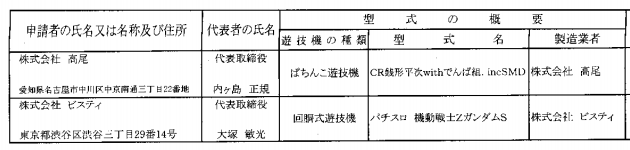 申請者の氏名又は名称及び住所 代表者の氏名 型式の概要
遊技機の種類 型式名 製造業者
株式会社 高尾 代表取締役 ぱちんこ遊技機 CR銭形平次withでんぱ組.incSMD 株式会社 高尾
愛知県名古屋市中川区中京南通三丁目22番地 内ヶ島 正規
株式会社 ビスティ 代表取締役 回胴式遊技機 パチスロ 機動戦士ZガンダムS 株式会社 ビスティ
東京都渋谷区渋谷三丁目29番14号 大塚 敏光